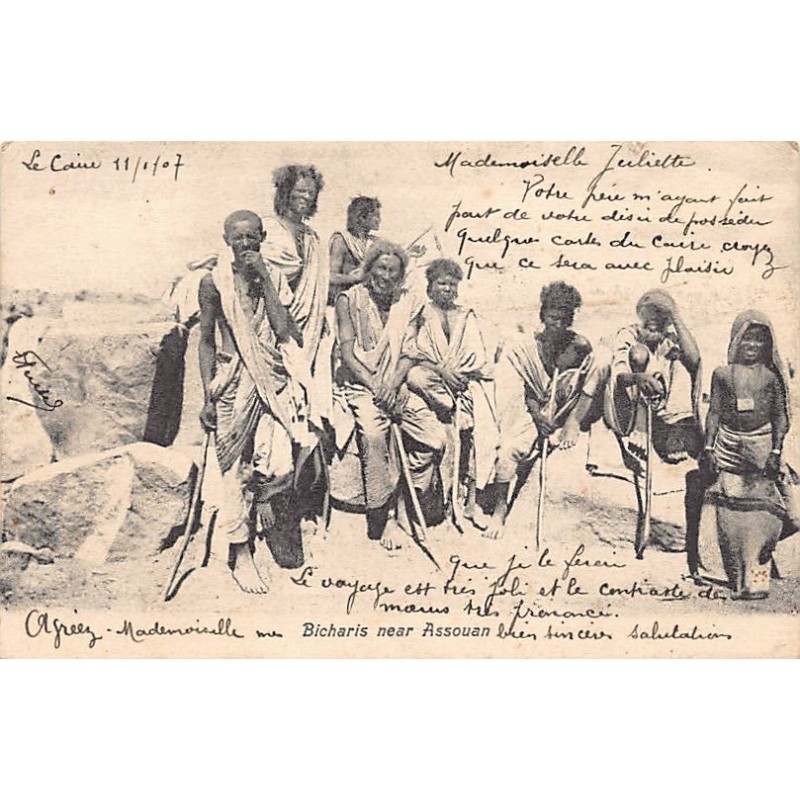 Le Caire 11/1/07
Mademoiselle Juliette.
Votre père m'ayant fait
part de votre désir de posséder
quelques cartes du Caire, croyez
que ce sera avec plaisir
que je le ferai
Le voyage est très joli et le contraste des
mœurs très prononcé.
Agréez - Mademoiselle mes
Bicharis near Assouan
bien sincères salutations